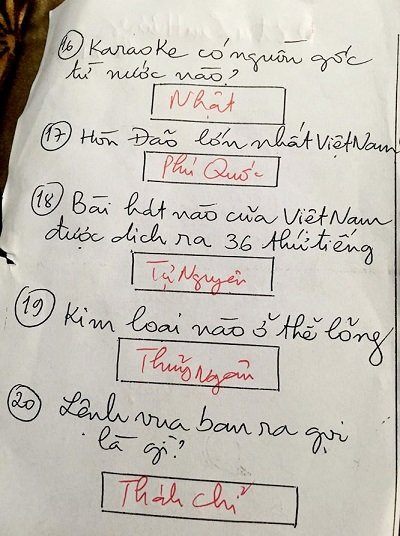 16 Karaoke có nguồn gốc
từ nước nào?
Nhật
17 Hòn Đảo lớn nhất Việt Nam
Phú Quốc
18 Bài hát nào của Việt Nam
được dịch ra 36 thứ tiếng
Tự Nguyện
19 Kim loại nào ở thể lỏng
Thủy Ngân
20 Lệnh vua ban ra gọi
là gì?
Thánh chỉ